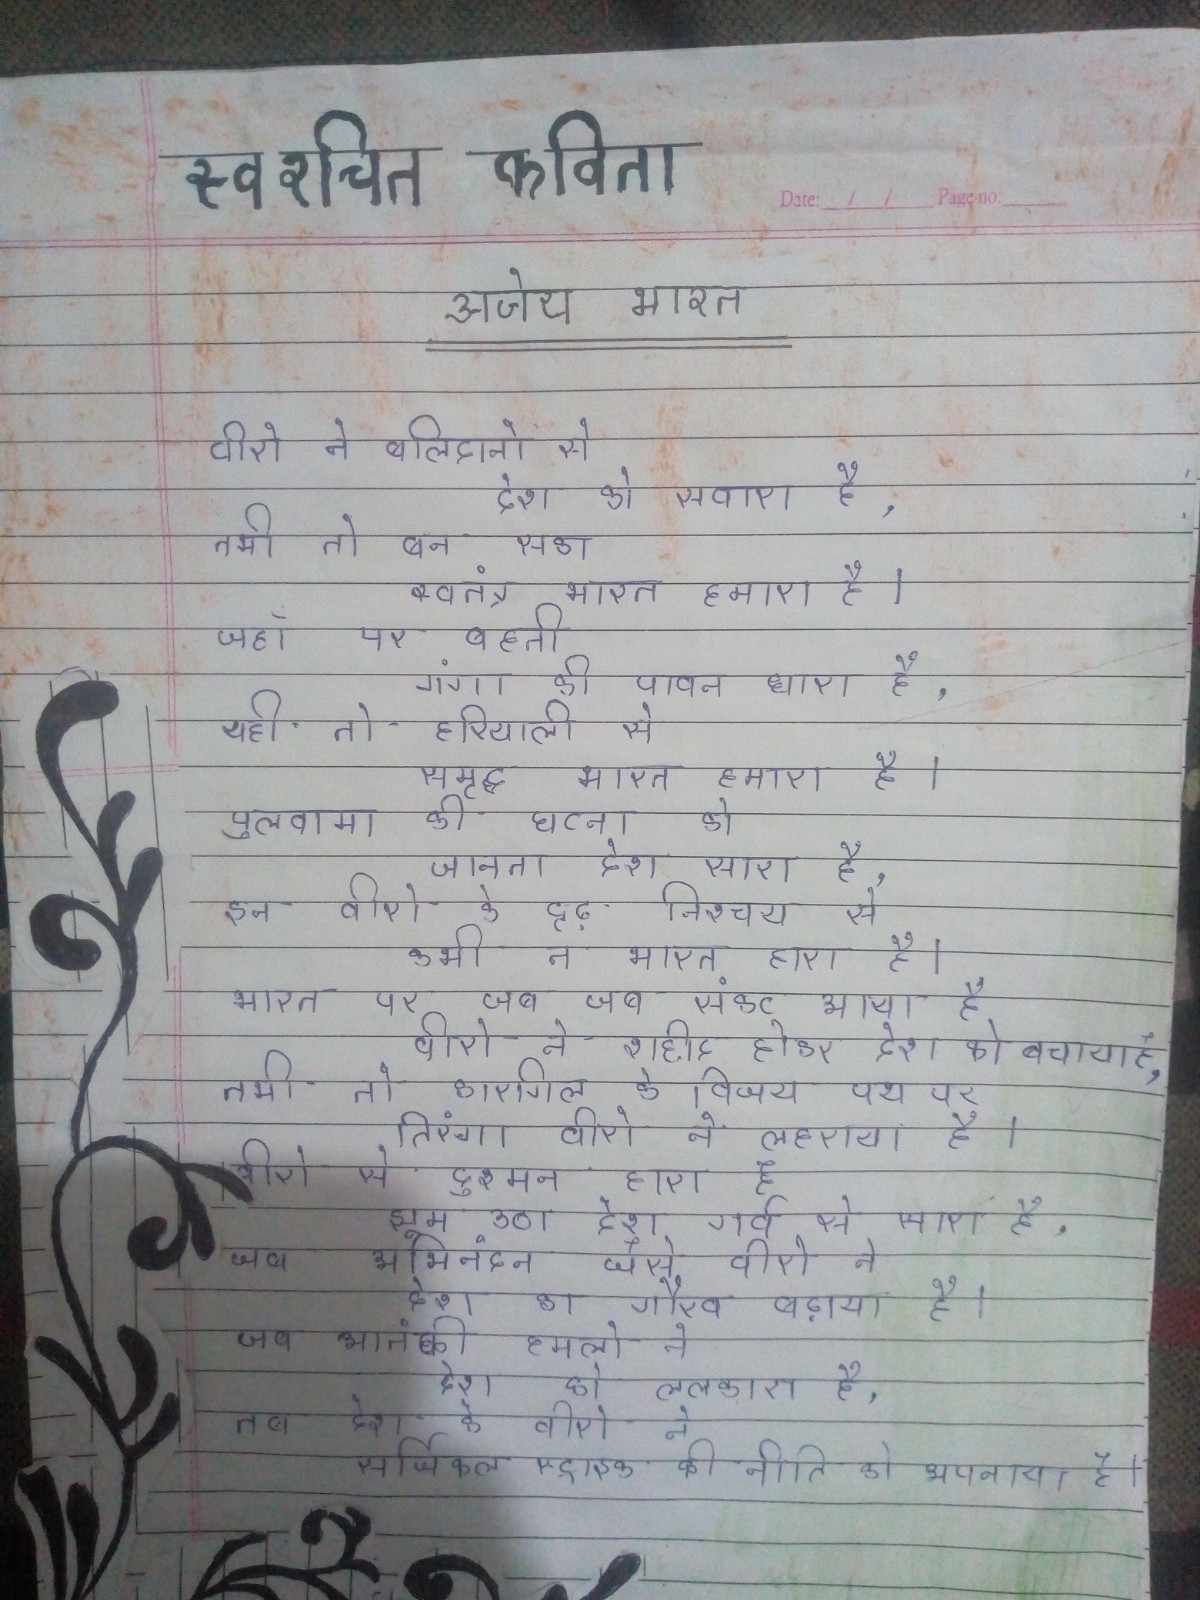 स्वरचित कविता
Date: / / Page no:
अजेय भारत
वीरो ने बलिदानो से
देश को सवारा है,
तभी तो बन सका
स्वतंत्र भारत हमारा है।
जहाँ पर बहती
गंगा की पावन धारा है,
यही तो हरियाली से
समृद्ध भारत हमारा है।
पुलवामा की घटना को
जानता देश सारा है,
इन वीरो के दृढ़ निश्चय से
कभी न भारत हारा है।
भारत पर जब जब संकट आया है
वीरो ने शहीद होकर देश को बचाया है,
तभी तो कारगिल के विजय पथ पर
तिरंगा वीरो ने लहराया है।
वीरो से दुश्मन हारा है
झूम उठा देश गर्व से सारा है,
जब अभिनंदन जैसे वीरो ने
देश का गौरव बढ़ाया है।
जब आतंकी हमलो ने
देश को ललकारा है,
तब देश के वीरो ने
सर्जिकल स्ट्राइक की नीति को अपनाया है।